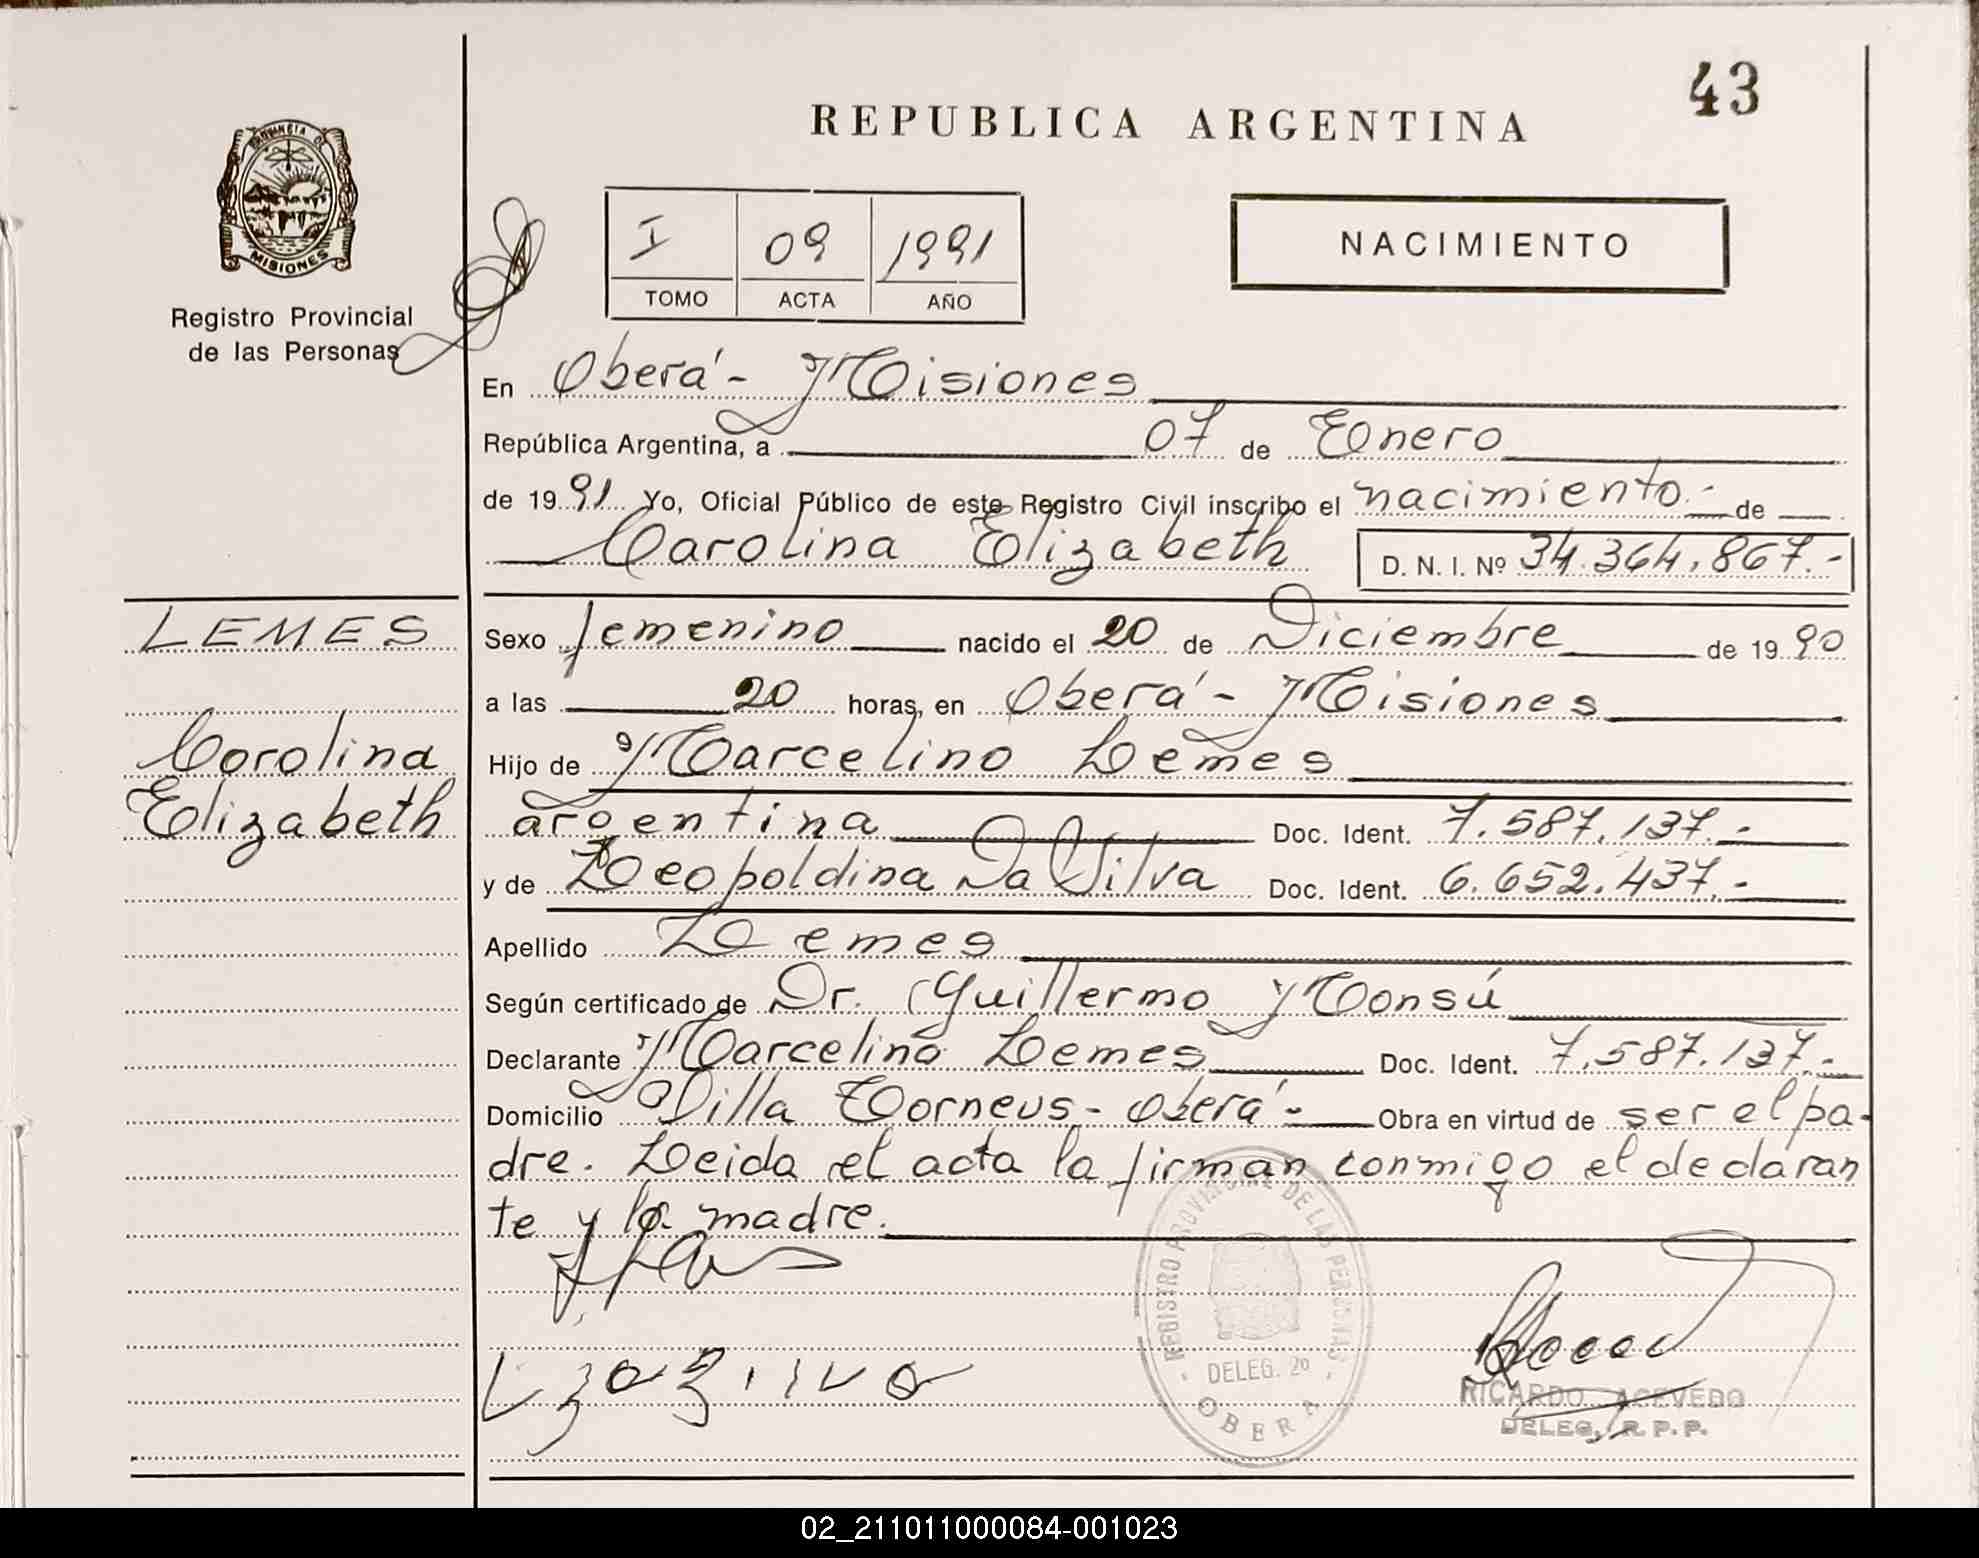 43
REPUBLICA ARGENTINA
PROVINCIA DE
MISIONES
Registro Provincial
de las Personas
I 09 1991
TOMO ACTA AÑO
NACIMIENTO
En Oberá - Misiones
República Argentina, a 07 de Enero
de 1991 Yo, Oficial Público de este Registro Civil inscribo el nacimiento.- de
Carolina Elizabeth D. N. I. Nº 34.364.867.-
LEMES
Carolina
Elizabeth
Sexo femenino nacido el 20 de Diciembre de 1990
a las 20 horas, en Oberá - Misiones
Hijo de Marcelino Lemes
argentina Doc. Ident. 7.587.137.-
y de Leopoldina Da Silva Doc. Ident. 6.652.437.-
Apellido Lemes
Según certificado de Dr. Guillermo Monsú
Declarante Marcelino Lemes Doc. Ident. 7.587.137.-
Domicilio Villa Torneus - Oberá - Obra en virtud de ser el pa-
dre. Leida el acta la firman conmigo el declaran
te y la madre.
REGISTRO PROVINCIAL DE LAS PERSONAS
- DELEG. 2º -
OBERA
RICARDO ACEVEDO
DELEG. R.P.P.
02_211011000084-001023